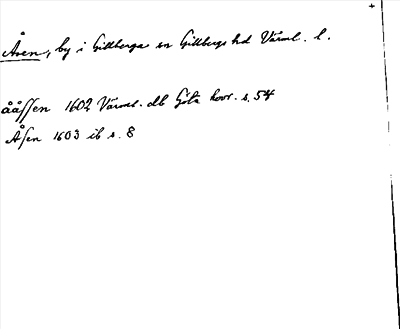 Åsen, by i Gillberga sn Gillbergs hd Värml. l.
ååſſen 1602 Värml. db Göta hovr. s. 54
Åſen 1603 ib s. 8